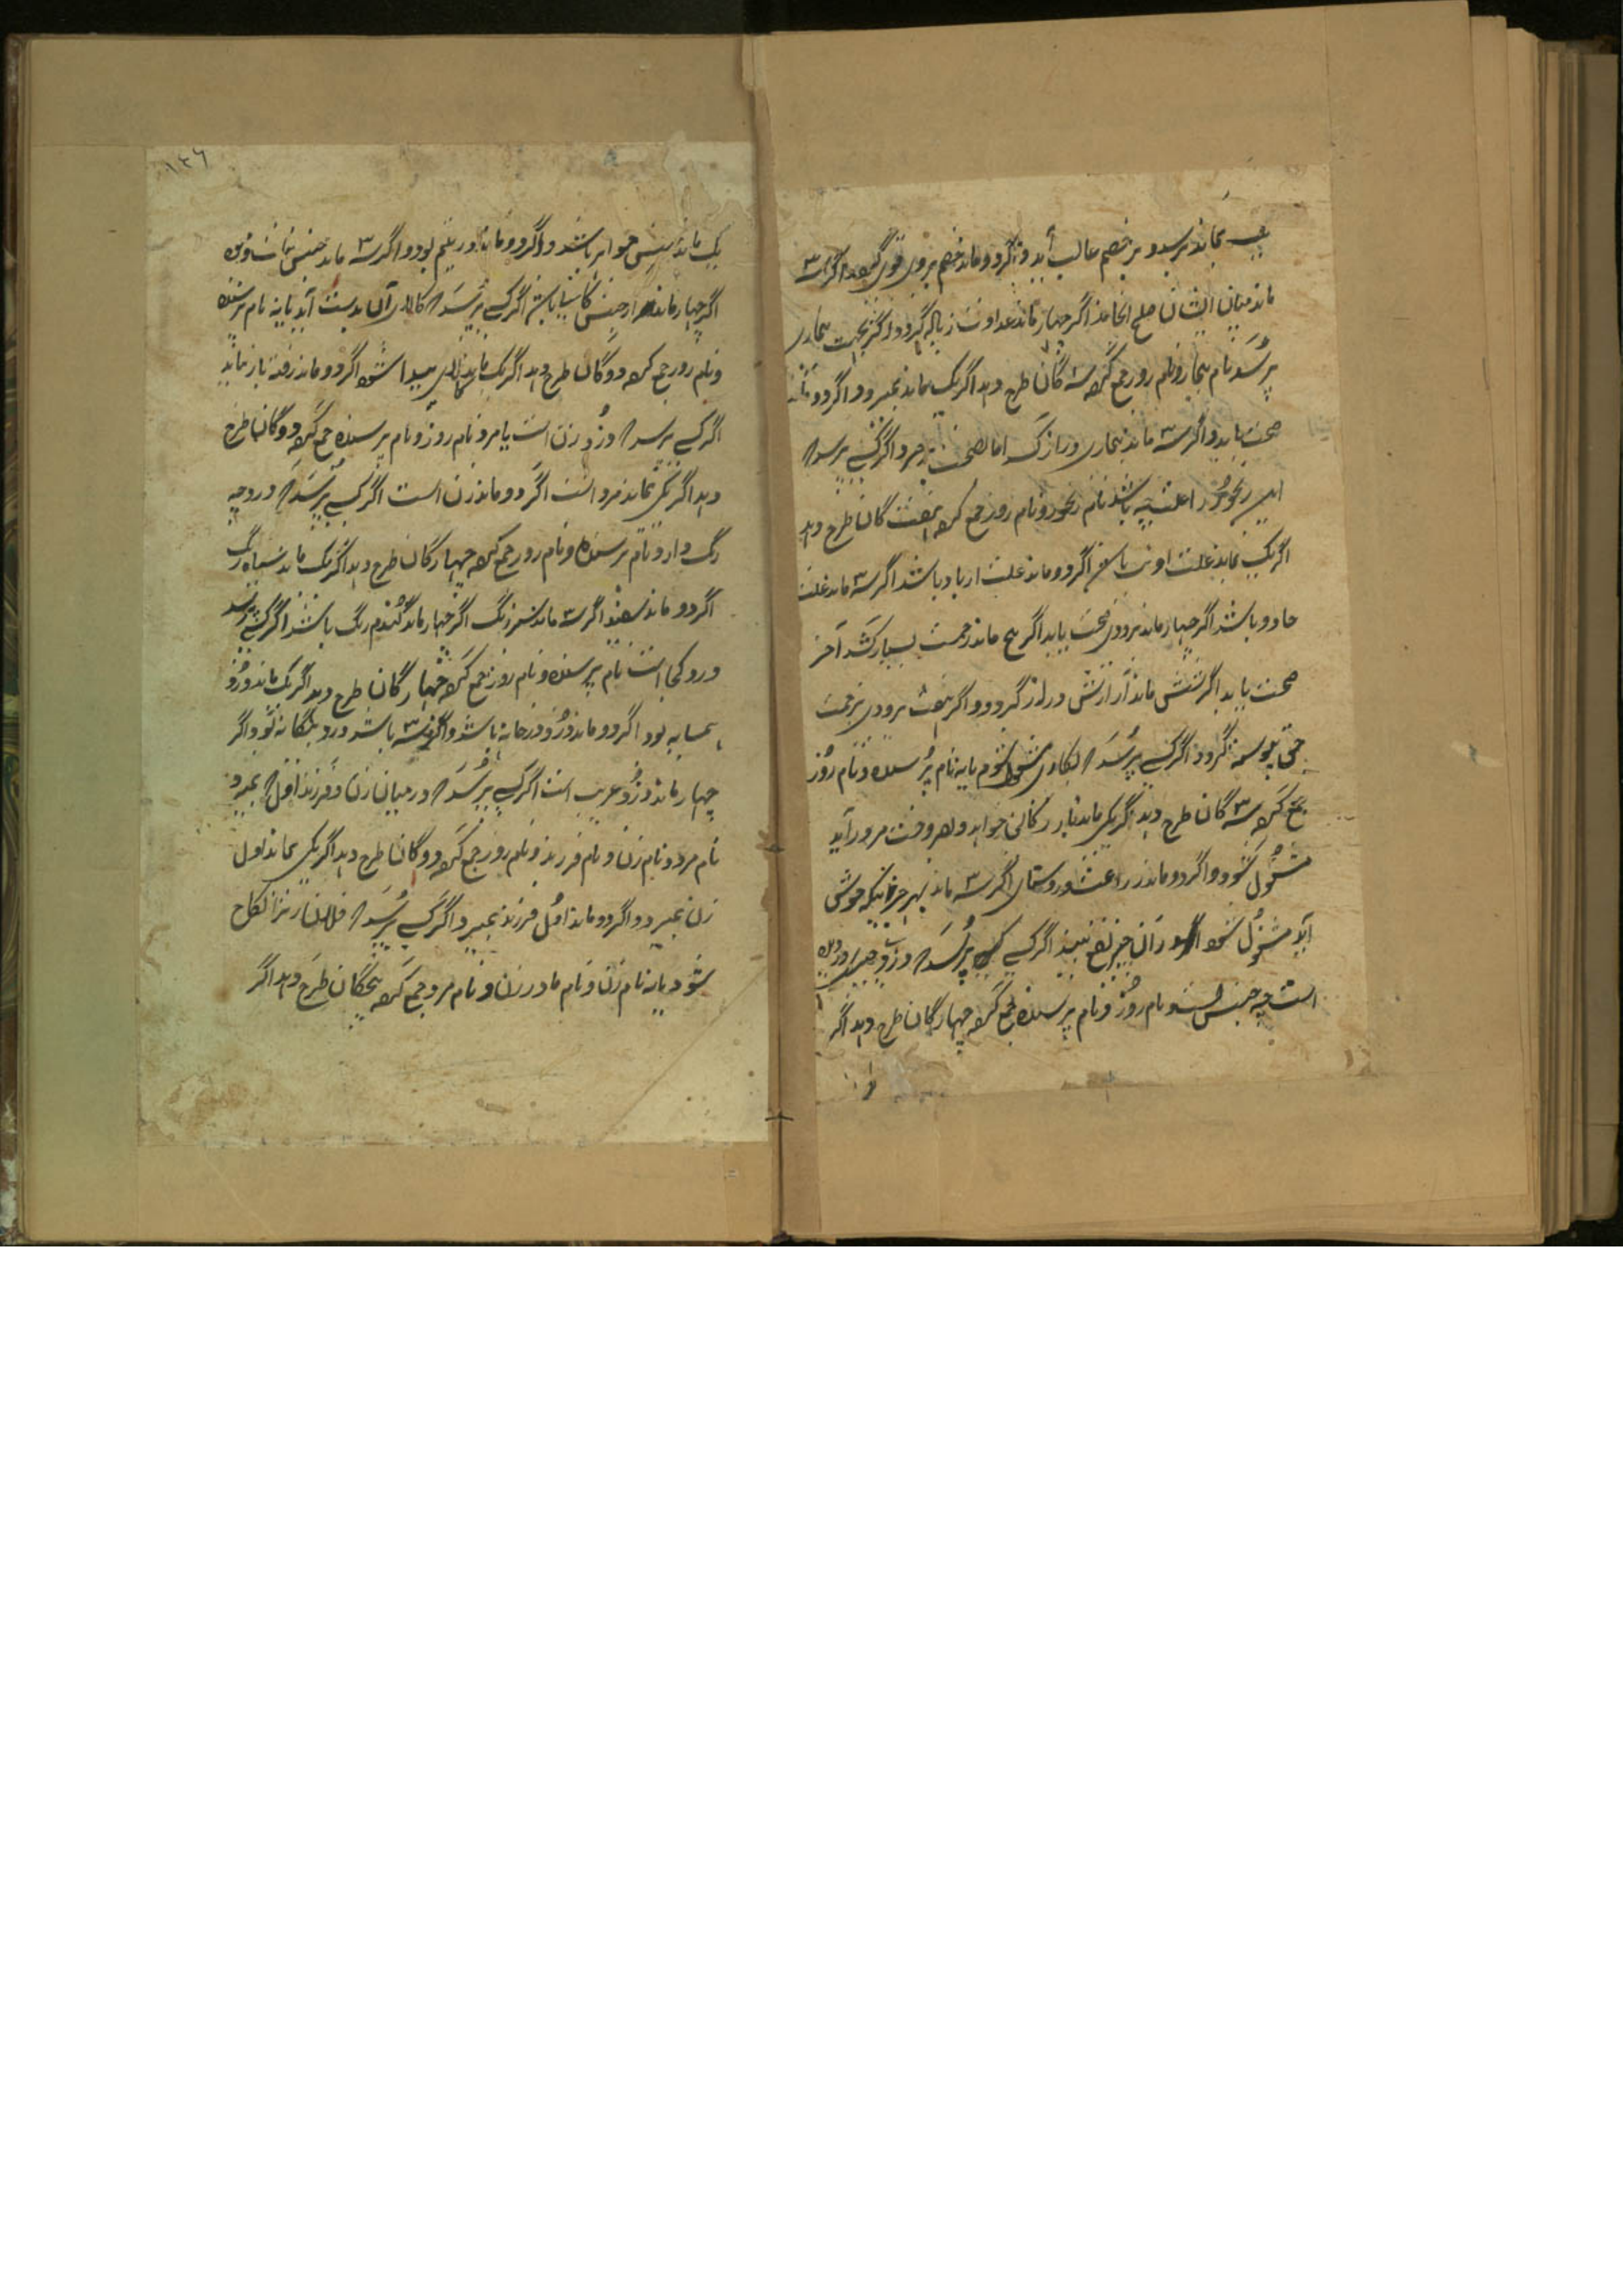 یک بماند پرسنده بر خصم غالب آید و اگر دو ماند خصم بر وی قوی گردد و اگر سه
ماند میان ایشان صلح انجامد اگر چهار ماند عداوت زیاده گردد و اگر بجهت بیماری
پرسد نام بیمار و نام روز جمع کرده سه گان طرح دهد اگر یک بماند بمیرد و اگر دو ماند
صحت یابد و اگر سه ماند بیماری دراز کشد اما صحت پذیرد و اگر کسی پرسد که
این رنجور را علت چه باشد نام رنجور و نام روز جمع کرده هفت گان طرح دهد
اگر یک بماند علت او تب باشد اگر دو ماند علت از باد باشد اگر سه ماند علت
جادو باشد اگر چهار ماند بزودی صحت یابد اگر پنج ماند زحمت بسیار کشد آخر
صحت یابد اگر شش ماند آزارش دراز گردد و اگر هفت بزودی زحمت
پرسد که بکاری مشغول شوم یا نه نام پرسنده و نام روز
جمع کرده سه گان طرح دهد اگر یکی ماند
مشغول شود و اگر دو ماند زراعت و روستای اگر سه ماند بهر حرفتیکه خوش
آید مشغول شود در آن چیز نفع بیند اگر کسی پرسد که دزد چیزی دزدیده
است چه جنس است نام روز و نام پرسنده جمع کرده چهار گان طرح دهد اگر
۱۳۶
یک ماند جنس جواهر باشد و اگر دو ماند زر و سیم بود و اگر سه ماند جنس
اگر چهار ماند از جنس باشد اگر کسی پرسد که کالای آن بدست آید یا نه نام پرسنده
و نام روز جمع کرده دو گان طرح دهد اگر یک ماند کالای پیدا شود اگر دو ماند رفته باز نیاید
اگر کسی پرسد که دزد زن است یا مرد نام روز و نام پرسنده جمع کرده دو گان طرح
دهد اگر یکی بماند مرد است اگر دو ماند زن است اگر کسی پرسد که دزد چه
رنگ دارد نام پرسنده و نام روز جمع کرده چهار گان طرح دهد اگر یک ماند سیاه رنگ
اگر دو ماند سفید اگر سه ماند سبز رنگ اگر چهار ماند گندم رنگ باشد اگر کسی پرسد
دزد کجا است نام پرسنده و نام روز جمع کرده چهار گان طرح دهد اگر یک ماند دزد
همسایه بود اگر دو ماند دزد در خانه باشد و اگر سه باشد دزد بیگانه بود و اگر
چهار ماند دزد غریب است اگر کسی پرسد که در میان زن و فرزند اول که بمیرد
نام مرد و نام زن و نام فرزند و نام روز جمع کرده دو گان طرح دهد اگر یکی بماند اول
زن بمیرد و اگر دو ماند اول فرزند بمیرد و اگر کسی پرسد که فلان را نکاح
شود یا نه نام زن و نام مادر زن و نام مرد جمع کرده پنجگان طرح دهد اگر